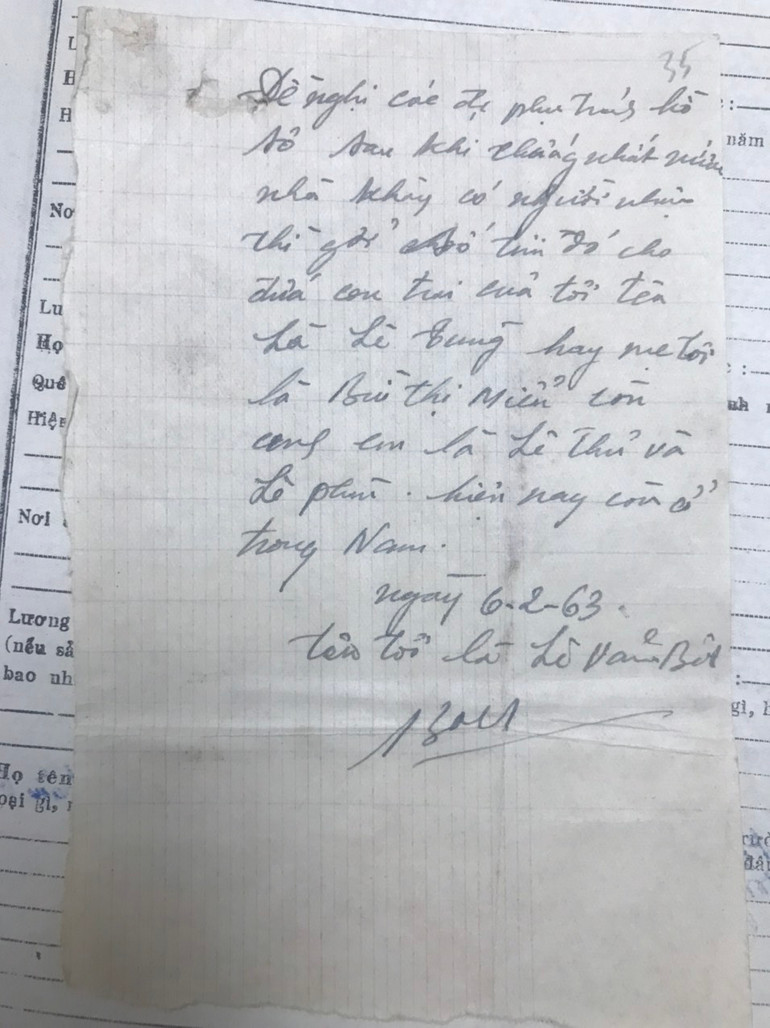 35
Đề nghị các đ/c phụ trách hồ
sơ sau khi thống nhất nước
nhà không có người nhận
thì gởi số tiền đó cho
đứa con trai của tôi tên
Là Lê Trung hay mẹ tôi
là Bùi Thị Miễn còn
cùng em là Lê Thử và
Lê phùn. hiện nay còn ở
trong Nam.
ngày 6-2-63.
tên tôi là Lê Văn Bôt
năm
Nơ
Lu
Họ
Quê
Hiện
Nơi
Lương
(nếu
bao nh
Họ tên
oại gì,
gì,